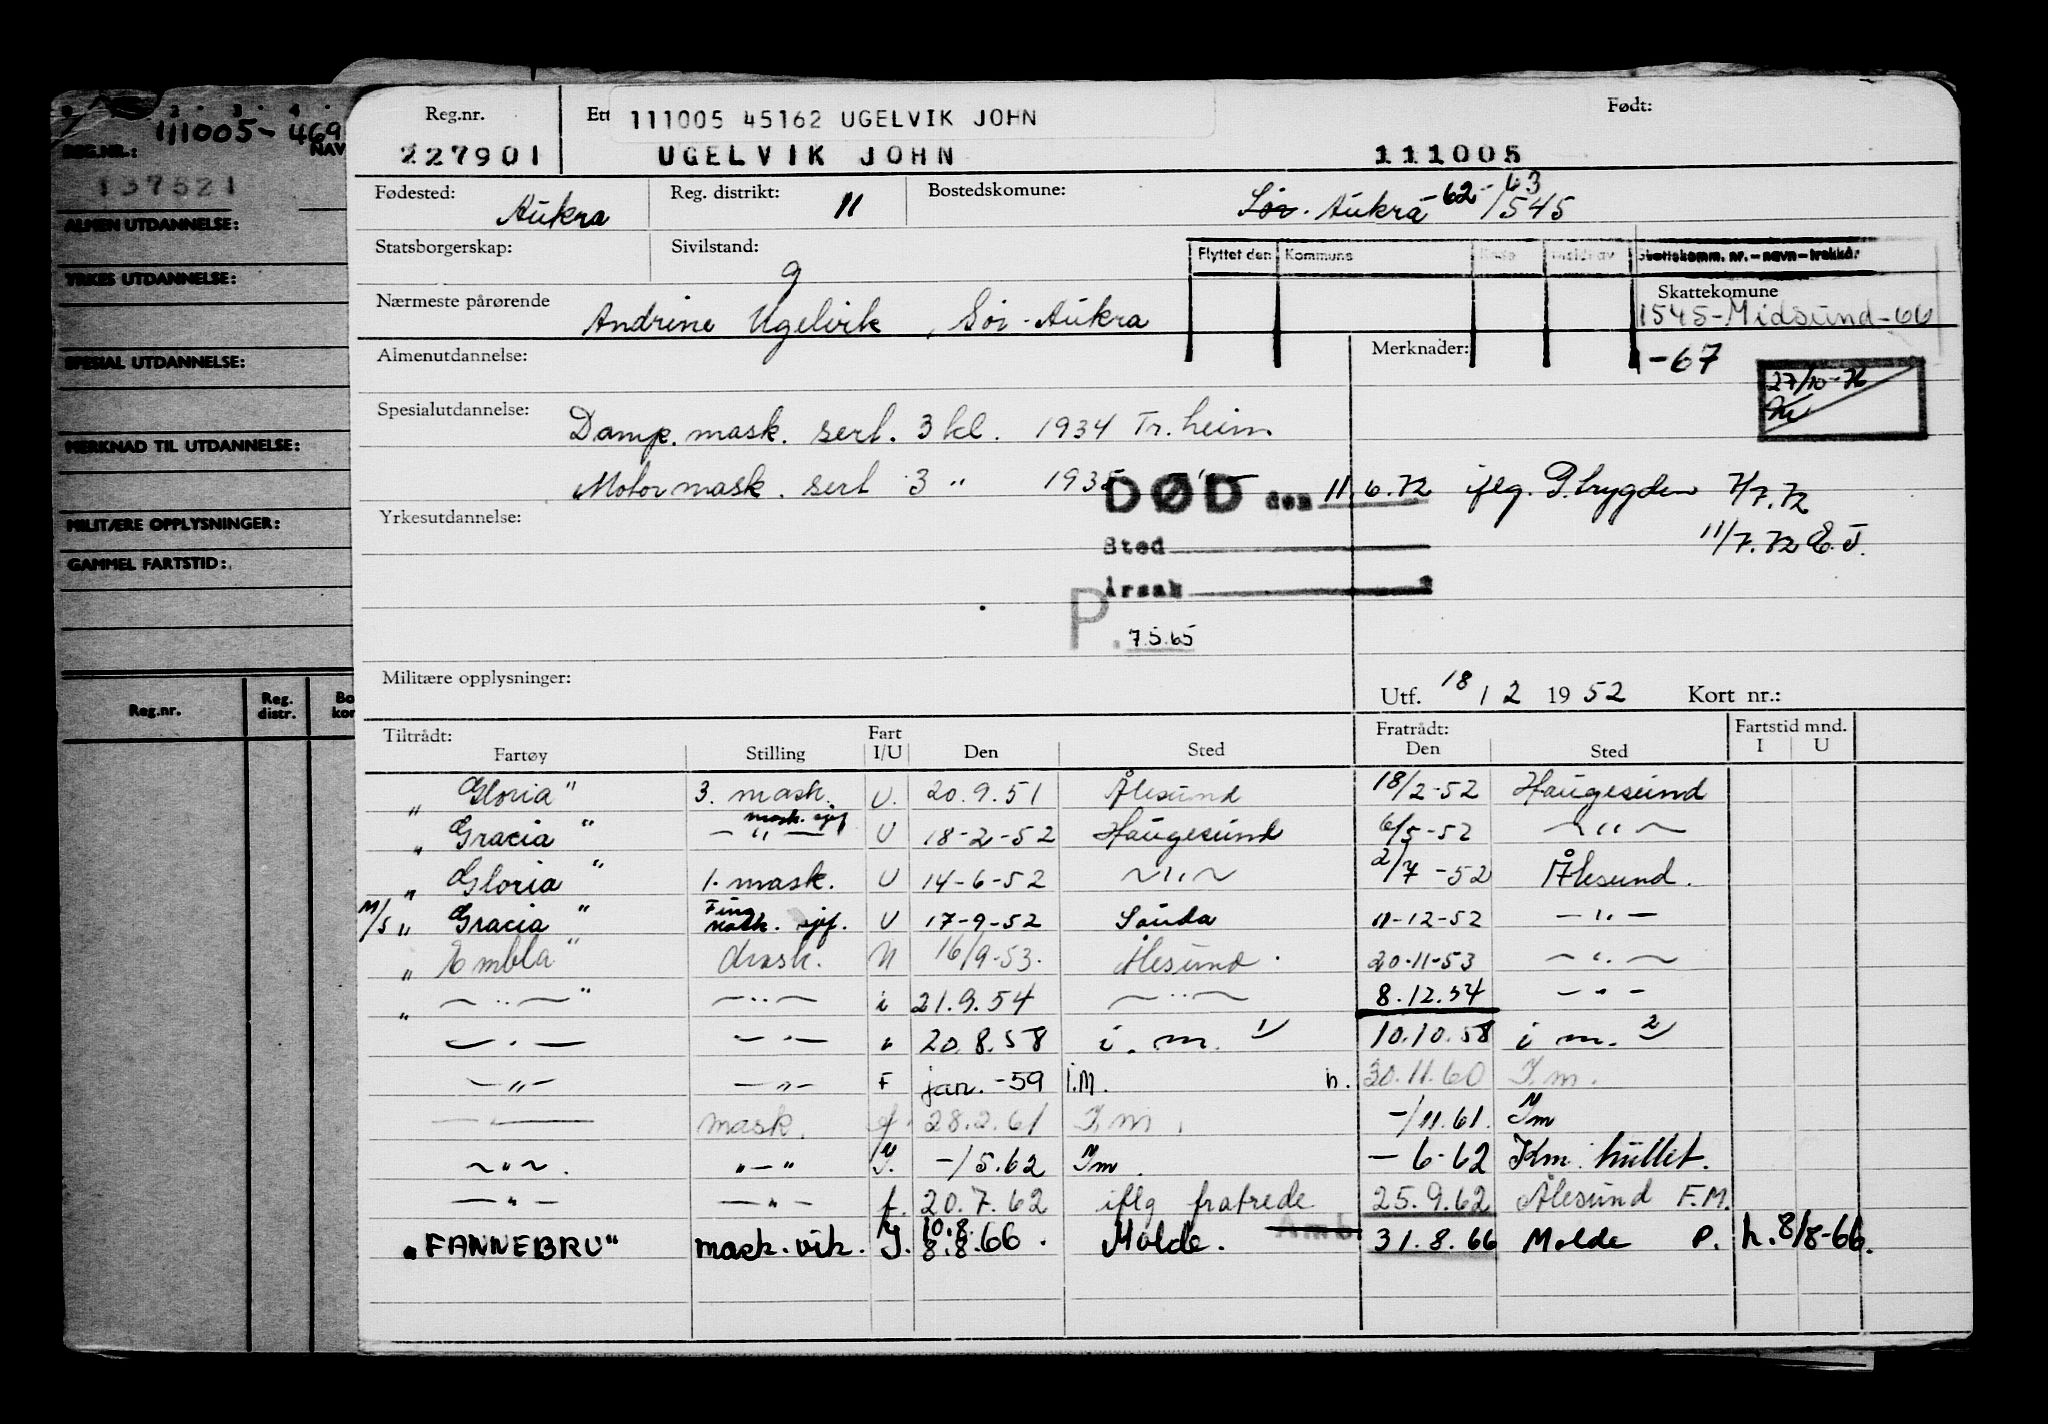 111005-469
REG.NR.: NAV
137521
ALMEN UTDANNELSE:
YRKES UTDANNELSE:
SPESIAL UTDANNELSE:
MERKNAD TIL UTDANNELSE:
MILITÆRE OPPLYSNINGER:
GAMMEL FARTSTID:
Reg.nr. Reg. distr. Bo kor
Reg.nr. Ett 111005 45162 UGELVIK JOHN Født:
227901 UGELVIK JOHN 111005
Fødested: Aukra Reg. distrikt: 11 Bostedskomune: Sør. Aukra -62-63 /545
Statsborgerskap: Sivilstand: g
Flyttet den Kommune Skattekomm. nr.-navn-trekkår
Skattekomune
Nærmeste pårørende Andrine Ugelvik, Sør-Aukra 1545-Midsund-66
Almenutdannelse: Merknader: -67
27/10-76
Spesialutdannelse: Damp. mask. sert. 3 kl. 1934 Tr.heim
Motor mask. sert 3 " 1935
DØD den 11.6.72 iflg. P.trygden 7/7.72
Yrkesutdannelse:
11/7.72 E.T.
Sted
Årsak
P. 7.5.65
Militære opplysninger:
Utf. 18/2 1952 Kort nr.:
Tiltrådt: Fart Fratrådt: Fartstid mnd.
Fartøy Stilling I/U Den Sted Den Sted I U
"Gloria" 3. mask. U. 20.9.51 Ålesund 18/2-52 Haugesund
"Gracia" mask. sjef — " — U 18-2-52 Haugesund 6/5-52 — " —
"Gloria" 1. mask. U 14-6-52 — " — 2/7-52 Ålesund.
M/S "Gracia" mask. sjef. U 17-9-52 Sauda 11-12-52 — " —
"Embla" mask. N 16/9-53. Ålesund. 20-11-53 — " —
" — " — " — " — i 21.9.54 — " — 8.12.54 — " —
— " — — " — " 20.8.58 i. m. 1) 10.10.58 i m. 2)
— " — — " — F jan. -59 I.M. h. 30.11.60 I.m.
— " — mask. f. 28.2.61 I.m. -/11.61. Im
— " — . " — " I. -/5.62 Im. -6-62 Km. hullet.
— " — — " — f. 20.7.62 iflg fratrede 25.9.62 Ålesund F.M.
"FANNEBRU" mask.vik. I. 10.8. 8.8.66. Molde. 31.8.66 Molde P. h. 8/8-66.